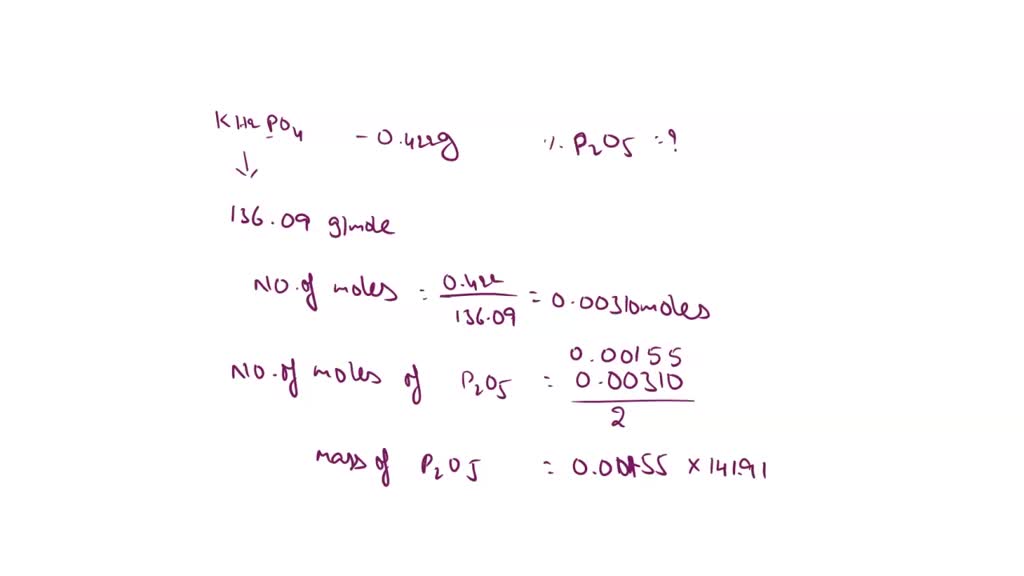 KH2PO4 - 0.422g % P2O5 = ?
↓
136.09 g/mole
NO. of moles = 0.422 / 136.09 = 0.00310 moles
0.00155
NO. of moles of P2O5 = 0.00310 / 2
mass of P2O5 = 0.00155 × 141.91